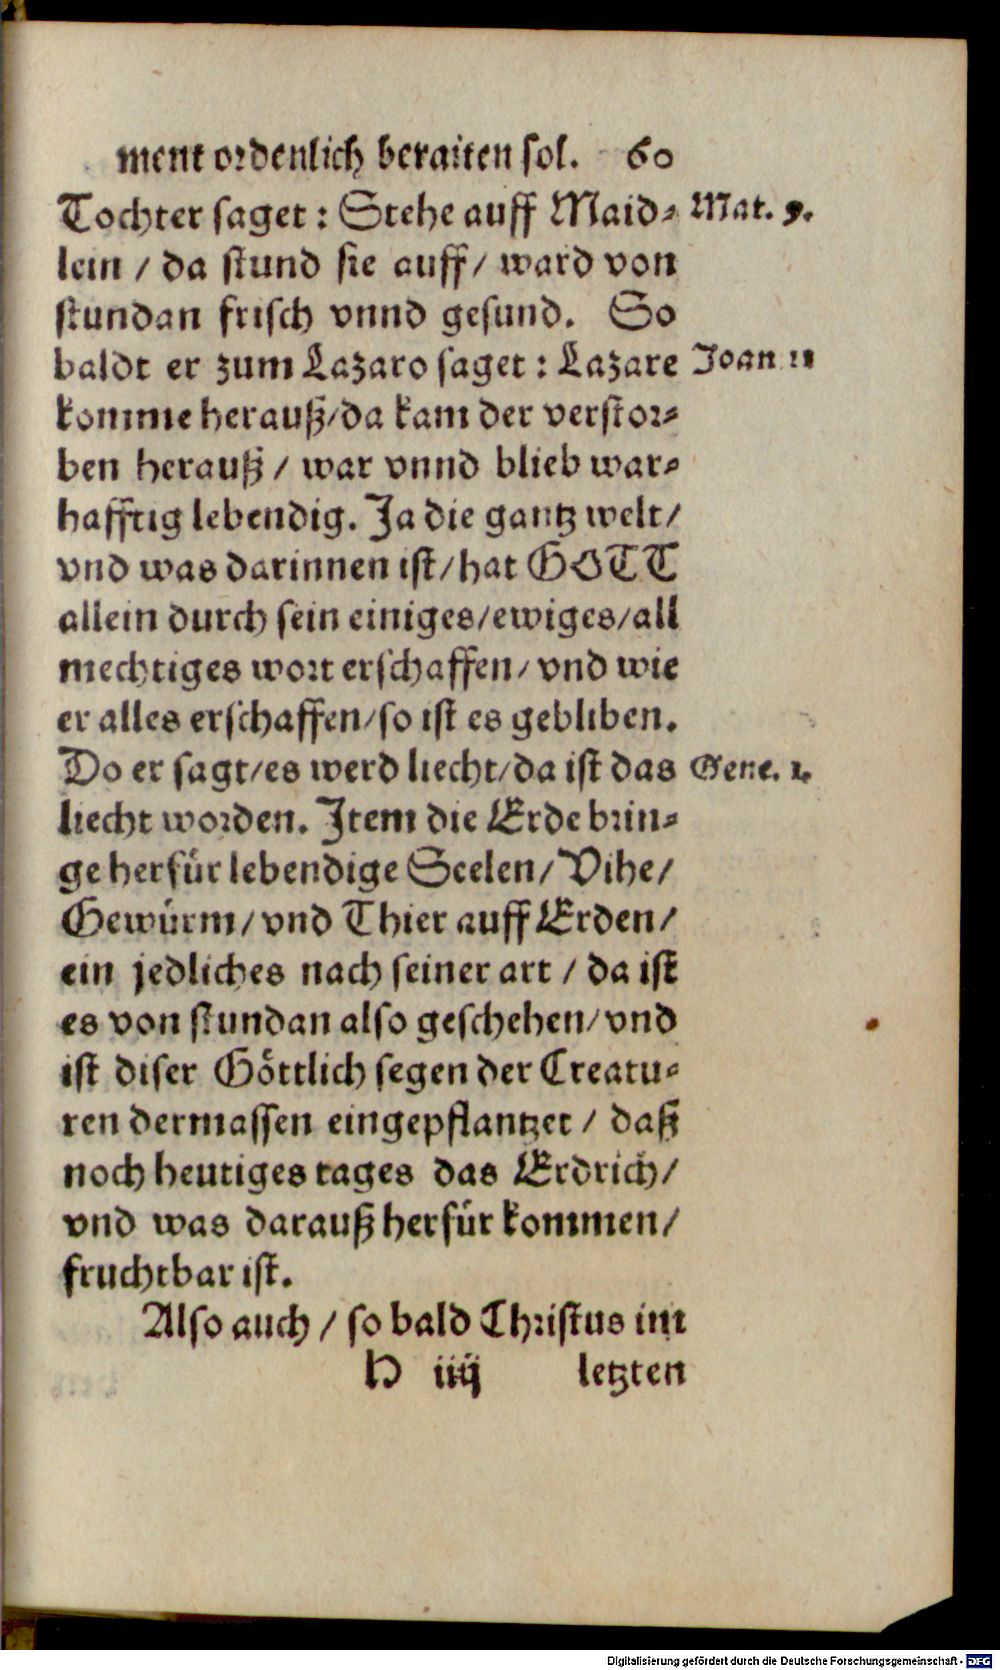 ment ordenlich beraiten sol. 60
Tochter saget : Stehe auff Maid- Mat. 9.
lein / da stund sie auff / ward von
stundan frisch vnnd gesund. So
baldt er zum Lazaro saget : Lazare Joan 11
komme herauß/da kam der verstor-
ben herauß / war vnnd blieb war-
hafftig lebendig. Ja die gantz welt/
vnd was darinnen ist/hat GOTT
allein durch sein einiges/ewiges/all
mechtiges wort erschaffen/ vnd wie
er alles erschaffen/so ist es gebliben.
Do er sagt/es werd liecht/da ist das Gene. 1.
liecht worden. Item die Erde brin-
ge herfür lebendige Seelen/ Vihe/
Gewürm/ vnd Thier auff Erden/
ein jedliches nach seiner art / da ist
es von stundan also geschehen/vnd
ist diser Göttlich segen der Creatu-
ren dermassen eingepflantzet / daß
noch heutiges tages das Erdrich/
vnd was darauß herfür kommen/
fruchtbar ist.
Also auch / so bald Christus im
H iiij letzten
Digitalisierung gefördert durch die Deutsche Forschungsgemeinschaft - DFG